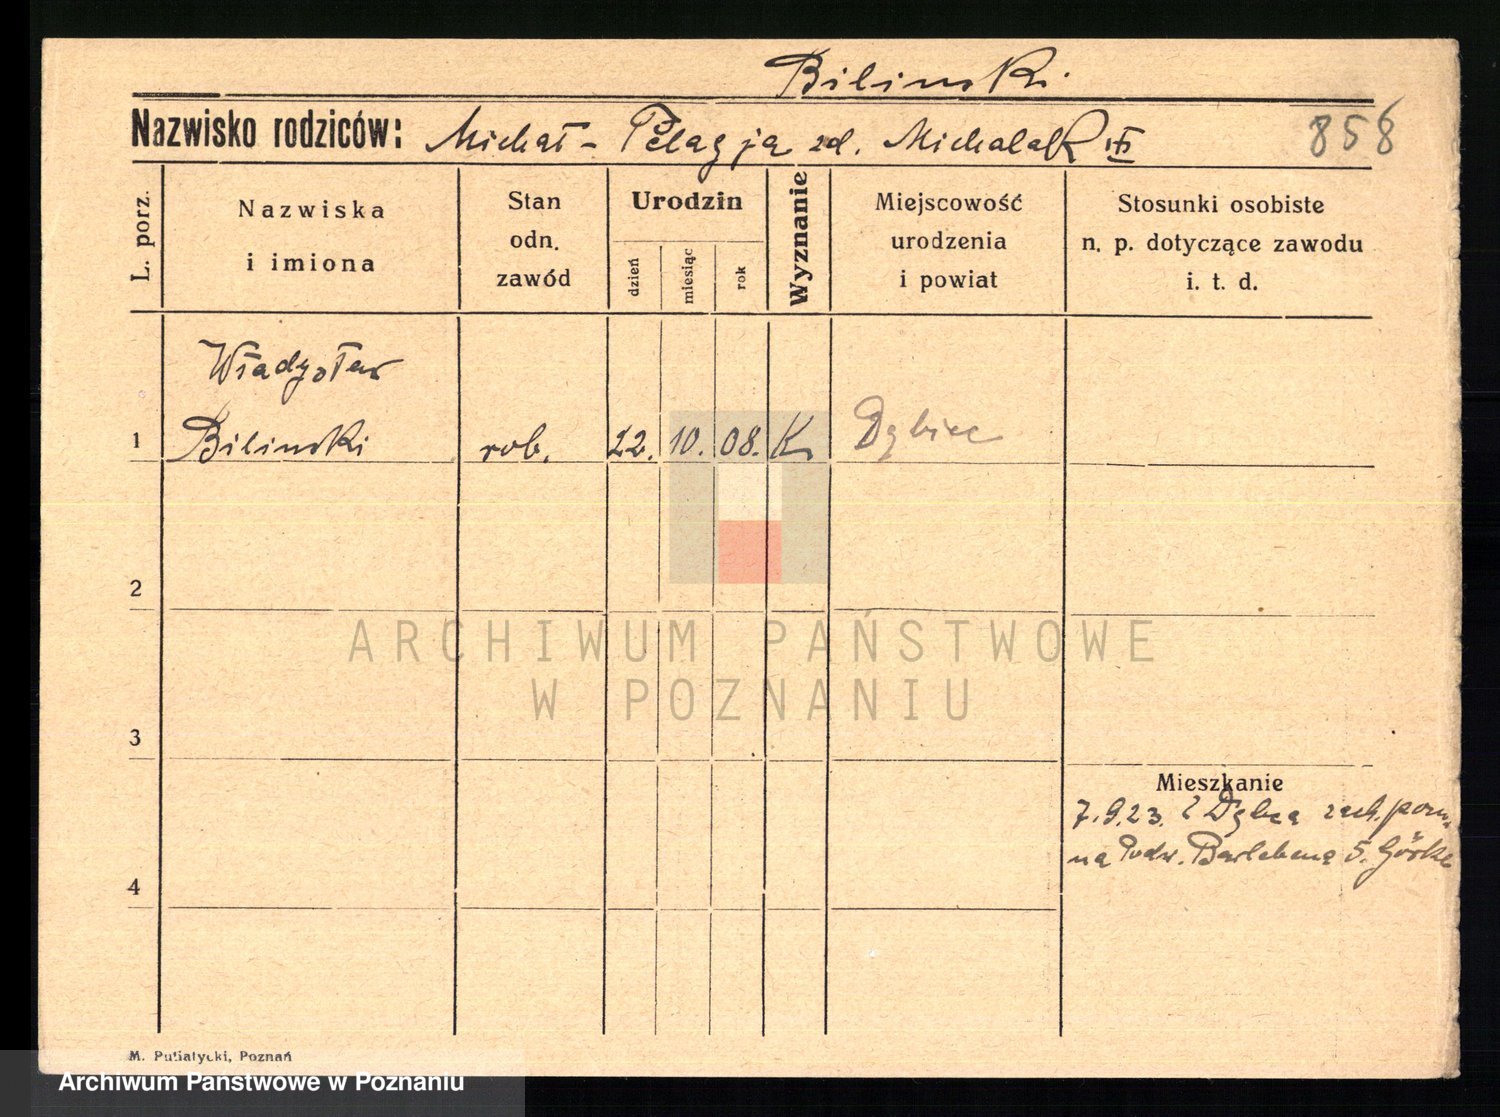 Bilinski
Nazwisko rodziców: Michał - Pelagja zd. Michalak
858
L. porz.
Nazwiska
i imiona
Stan
odn.
zawód
Urodzin
dzień
miesiąc
rok
Wyznanie
Miejscowość
urodzenia
i powiat
Stosunki osobiste
n. p. dotyczące zawodu
i. t. d.
Władysław
1 Bilinski rob. 22. 10. 08. K. Dębiec
2
ARCHIWUM PAŃSTWOWE
W POZNANIU
3
Mieszkanie
7.9.23. z Dębca
na Podw. 5. Górke
4
M. Putiatycki, Poznań
Archiwum Państwowe w Poznaniu